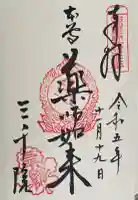 奉拝
令和五年
十月十九日
薬師如来
三千院